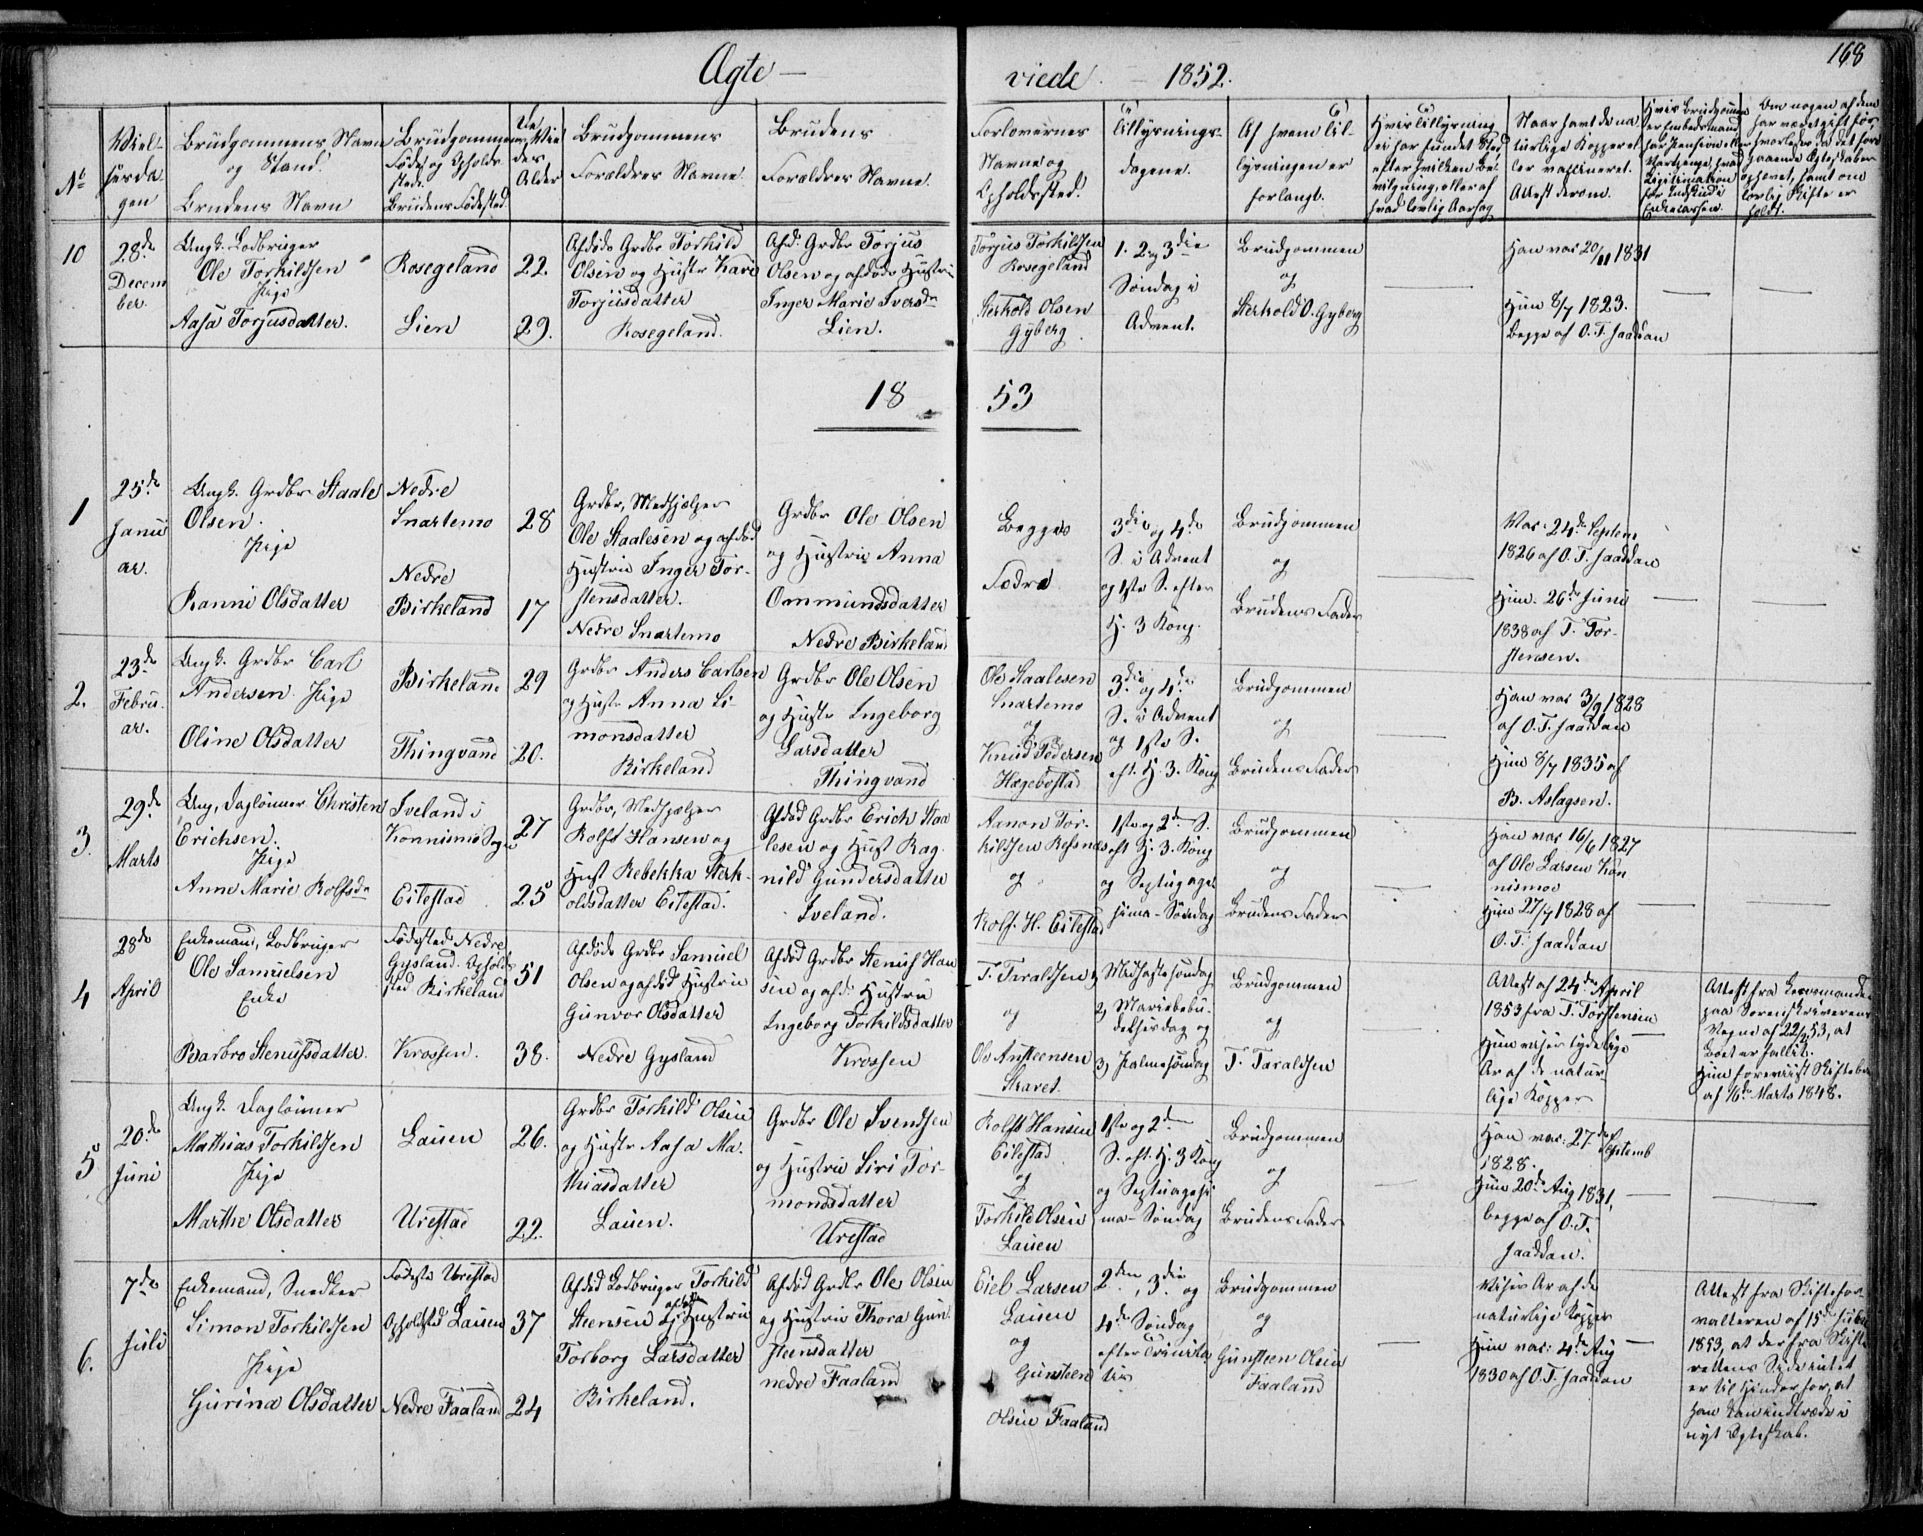 168
Ægte – viede. – 1852.
No
Vielsesda-
gen
Brudgommens Navn
og Stand.
Brudens Navn
Brudgommens
Føde og Opholds
sted.
Brudens Fødested
De
Vie
des
Alder
Brudgommens
Forældres Navne.
Brudens
Forældres Navne.
Forlovernes
Navne og
Opholdssted.
Tillysnings-
dagene.
Af hvem Til-
lysningen er
forlangt.
Hvis Tillysning
ei har fundet Sted
efter hvilken Be-
vilgning, eller af
hvad lovlig Aarsag
Naar havt de na-
turlige Kopper el-
ler vaccineret.
Attest derom.
Hvis Brudgommen
er Embedsmand
har Pension eller
Vartpenge, hvad
Legitimation
for Indskud i
Enkecassen.
Om nogen af dem
har været gift før,
hvorledes da det fore-
gaaende Ægteskab er
ophævet, samt om
lovlig Skifte er
holdt.
10
28de
Decem
ber.
Ungk. Lodbruger
Ole Torkildsen
Pige
Aasa Torjusdatter.
Rosegeland
Lien
22.
29.
Afdøde Grdbr Torkild
Olsen og Hustr Kari
Torjusdatter
Rosegeland.
Afd. Grdbr Torjus
Olsen og afdøde Hustru
Inger Marie Iversdr
Lien.
Torjus Torkildsen
Rosegeland
Sterkold Olsen
Gyberg
1. 2 og 3die
Søndag i
Advent.
Brudgommen
og
Sterkold O. Gyberg
Han vac 20/11 1831
Hun 8/7 1823.
Begge af O. T. Jaaddan
1853
1
25de
Janu
ar.
Ungk. Grdbr Staale
Olsen.
Pige
Ranni Olsdatter
Nedre
Snartemo
Nedre
Birkeland
28
17
Grdbr, Medhjælper
Ole Staalesen og afdød
Hustrue Inger Tor-
stensdatter.
Nedre Snartemo
Grdbr Ole Olsen
og Hustrue Anna
Ommundsdatter
Nedre Birkeland
Begges
Fædre
3die og 4de
S. i Advent
og 1ste S. efter
H. 3 Kong.
Brudgommen
og
Brudens Fader
Vac: 24de Septem
1826 af O. T. Jaaddan
Hun. 26de Juni
1838 af T. Tor-
stensen.
2.
23de
Febru
ar.
Ungk. Grdbr Carl
Andersen Pige
Oline Olsdatter
Birkeland
Thingvand
29
20.
Grdbr Anders Carlsen
og Hustr Anna Si-
monsdatter
Birkeland
Grdbr Ole Olsen
og Hustr Ingeborg
Larsdatter
Thingvand
Ole Staalesen
Snartemo
og
Knud Pedersen
Hægebostad
3die og 4de
S. i Advent
og 1ste S.
eft. H. 3. Kong
Brudgommen
og
Brudens Fader
Han vac 3/9 1828
af O. T. Jaaddan
Hun 8/7 1835 af
B. Aslagsen.
3.
29de
Marts
Ung, Daglønner Christen
Erichsen.
Pige
Anne Marie Rolfsdr
Iveland i
Konnismo Sogn
Eilestad
27
25
Grdbr, Medhjælper
Rolf Hansen og
Hust Rebekka Sterk-
oldsdatter Eilestad.
Afdød Grdbr Erich Staa
lesen og Hust Rag-
nild Gundersdatter
Iveland.
Aanon Tor-
kildsen Refsnæs
og
Rolf. H. Eilestad
1ste og 2de S.
eft. H. 3. Kong
og Septuage-
sima-Søndag
Brudgommen
og
Brudens Fader
Han vac 16/6 1827
af Ole Larsen Kon
nismoe
Hun 27/7 1828 af
O. T. Jaaddan
4
28de
April
Enkemand, Lodbruger
Ole Samuelsen
Enke
Barbro Stenufsdatter.
Fødested Nedre
Gysland. Ophold-
sted Birkeland
Krossen.
51
38.
Afdøde Grdbr Samuel
Olsen og afdød Hustrue
Gunvor Olsdatter
Nedre Gysland
Afdød Grdbr Stenuf Han
sen og afd. Hustru
Ingeborg Torkildsdatter
Krossen
T. Taraldsen
og
Ole Ansteensen
Skaret.
1) Midfastesøndag
2) Mariebebu-
delsesdag og
3) Palmesøndag
Brudgommen
og
T. Taraldsen
Attest af 24de April
1853 fra T. Torstensen
Hun viser tydelige
Ar af de natur-
lige Kopper
Attest fra Lensmanden
paa Sorenskriverens
Vegne af 22/2 53, at
Boet er fallit.
Hun foreviist Skiftebr
af 16de Marts 1848.
5
20de
Juni
Ungk. Daglønner
Mathias Torkildsen
Pige
Marthe Olsdatter
Lauen
Urestad
26.
22.
Grdbr Torkild Olsen
og Hustr Aasa Ma-
thiasdatter
Lauen.
Grdbr Ole Svendsen
og Hustrue Siri Tor-
mondsdatter
Urestad
Rolf Hansen
Eilestad
og
Torkild Olsen
Lauen
1ste og 2de
S. eft. H. 3 Kong
og Septuagesi-
ma-Søndag
Brudgommen
og
Brudens Fader
Han vac: 27de Septemb
1828.
Hun 20de Aug 1831,
begge af O. T.
Jaaddan.
6.
7de
Juli
Enkemand, Snedker
Simon Torkildsen
Pige
Gurina Olsdatter
Fødestd Urestad
Opholdsted Lauen
Nedre Faaland
37
24
Afdød Lodbruger Torkild
Steensen og afdøde Hustrue
Torborg Larsdatter
Birkeland.
Afdød Grdbr Ole Olsen
og Hustrue Thora Gun-
steensdatter
nedre Faaland
Eiel Larsen
Lauen
og
Gunsteen
Olsen Faaland
2den, 3die og
4de Søndag
efter Trinita-
tis
Brudgommen
og
Gunsteen Olsen
Faaland
Viser Ar af de
naturlige Kopper
Hun vac: 4de Aug
1830 af O. T. Jaaddan
Attest fra Skiftefor-
valteren af 15de Juni
1853, at der fra Skifte-
rettens Side intet
er til Hinder for, at
han kan indtræde i
nyt Ægteskab.